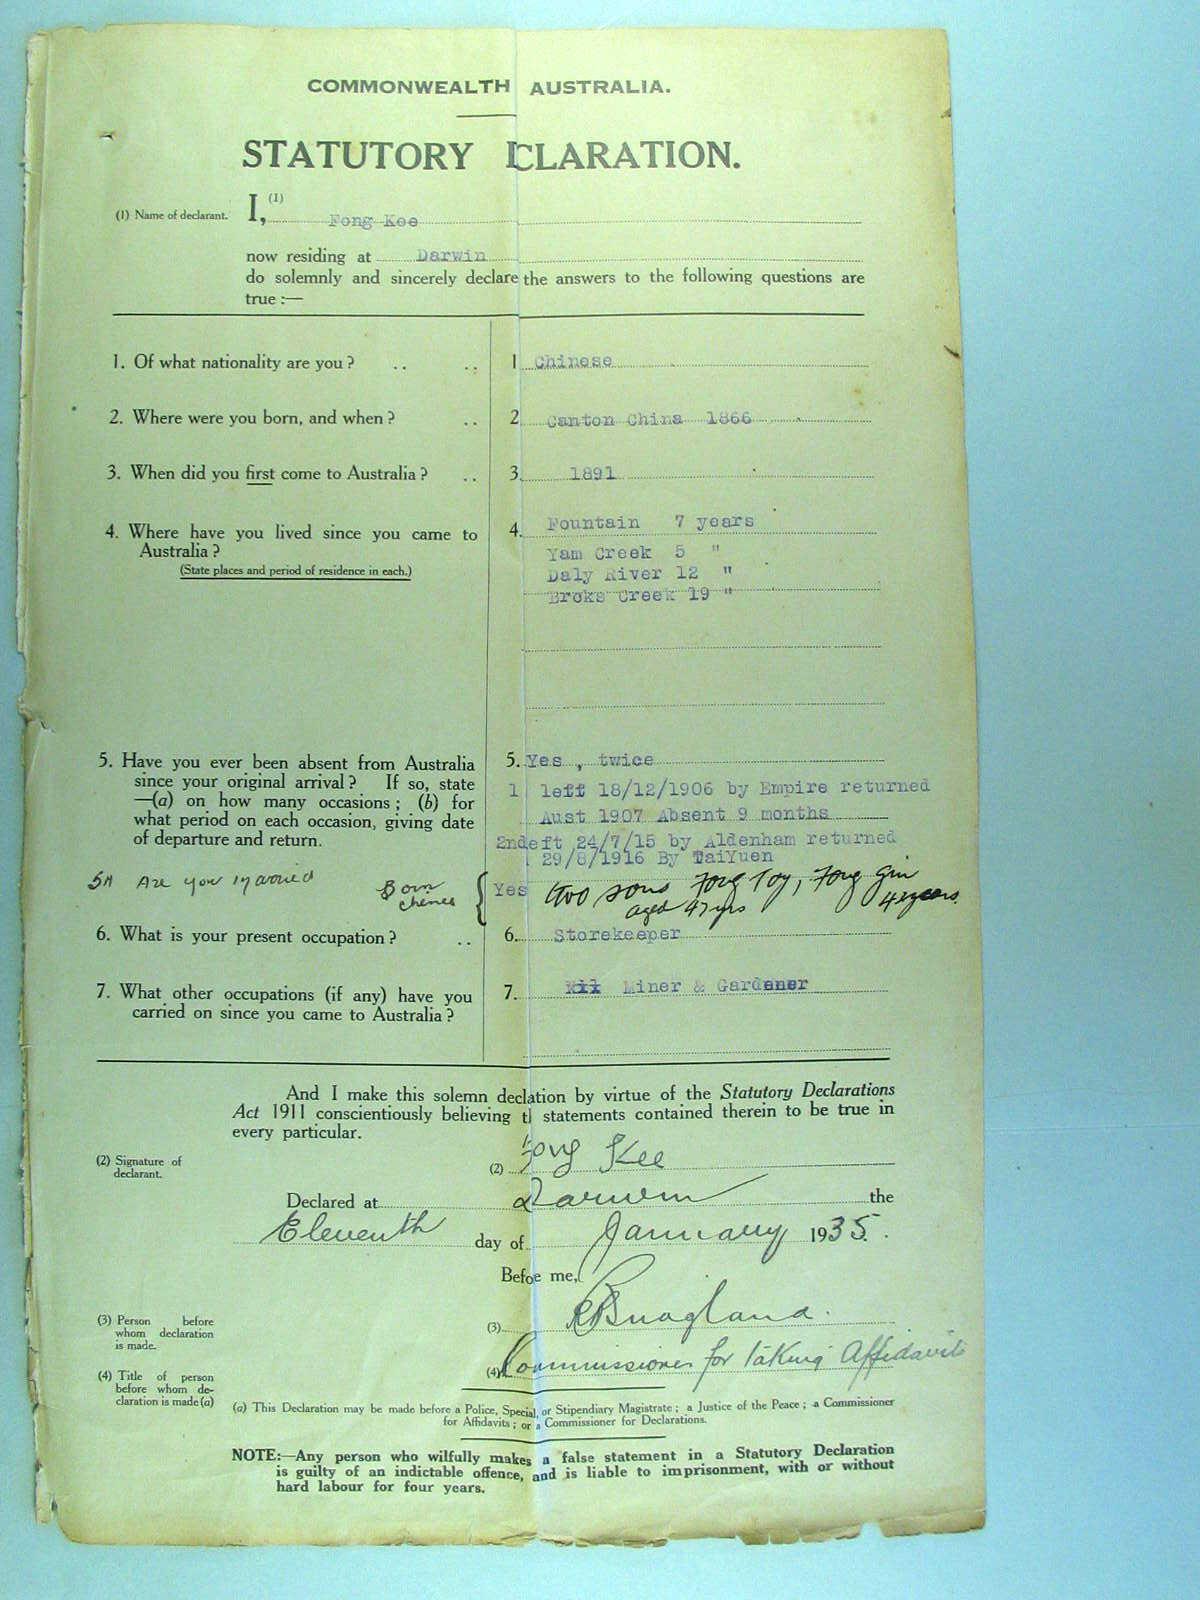 COMMONWEALTH AUSTRALIA.
STATUTORY CLARATION.
(1) Name of declarant.
I, (1) Fong Kee
now residing at Darwin
do solemnly and sincerely declare the answers to the following questions are
true :—
1. Of what nationality are you ? .. .. 1 Chinese
2. Where were you born, and when ? .. 2 Canton China 1866
3. When did you first come to Australia ? .. 3. 1891
4. Where have you lived since you came to
Australia ?
(State places and period of residence in each.)
4. Fountain 7 years
Yam Creek 5 "
Daly River 12 "
Broks Creek 19 "
5. Have you ever been absent from Australia
since your original arrival ? If so, state
—(a) on how many occasions ; (b) for
what period on each occasion, giving date
of departure and return.
5. Yes , twice
1 left 18/12/1906 by Empire returned
Aust 1907 Absent 9 months
2nd eft 24/7/15 by Aldenham returned
29/8/1916 By TaiYuen
5A Are you married
Born
Yes two sons Fong Toy, Fong Gin
aged 47 yrs 42 years.
6. What is your present occupation ? .. 6. Storekeeper
7. What other occupations (if any) have you
carried on since you came to Australia ?
7. Nil Miner & Gardener
And I make this solemn declation by virtue of the Statutory Declarations
Act 1911 conscientiously believing t statements contained therein to be true in
every particular.
(2) Signature of
declarant.
(2) Fong Kee
Declared at Darwin the
Eleventh day of January 1935.
Befoe me,
(3) Person before
whom declaration
is made.
(3)
(4) Title of person
before whom de-
claration is made (a)
(4) Commissioner for taking Affidavits
(a) This Declaration may be made before a Police, Special, or Stipendiary Magistrate ; a Justice of the Peace ; a Commissioner
for Affidavits ; or a Commissioner for Declarations.
NOTE:—Any person who wilfully makes a false statement in a Statutory Declaration
is guilty of an indictable offence, and is liable to imprisonment, with or without
hard labour for four years.